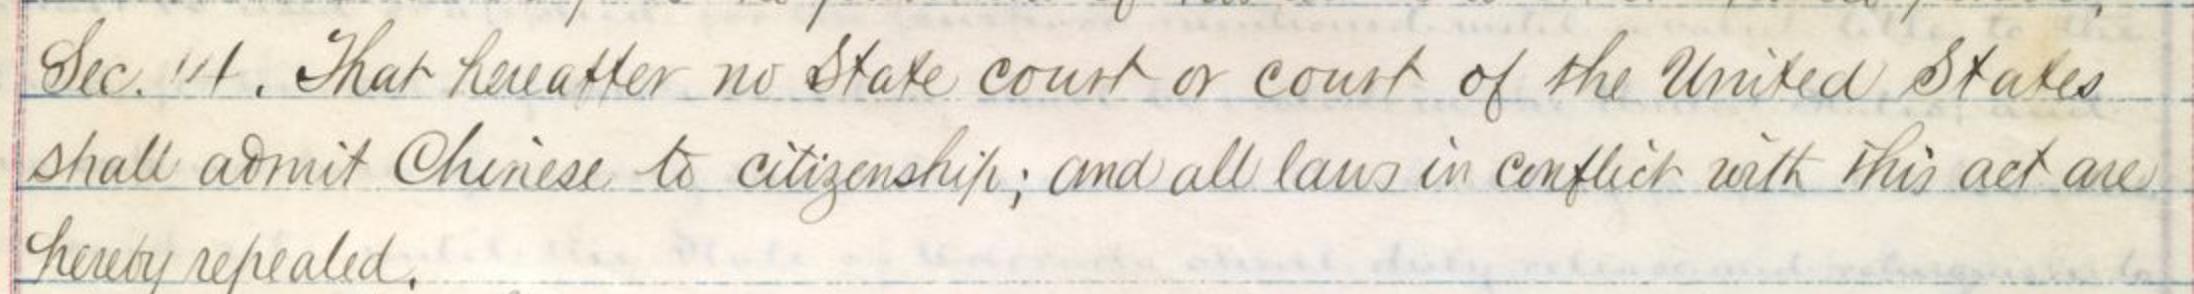 Sec. 14. That hereafter no State court or court of the United States
shall admit Chinese to citizenship; and all laws in conflict with this act are
hereby repealed.